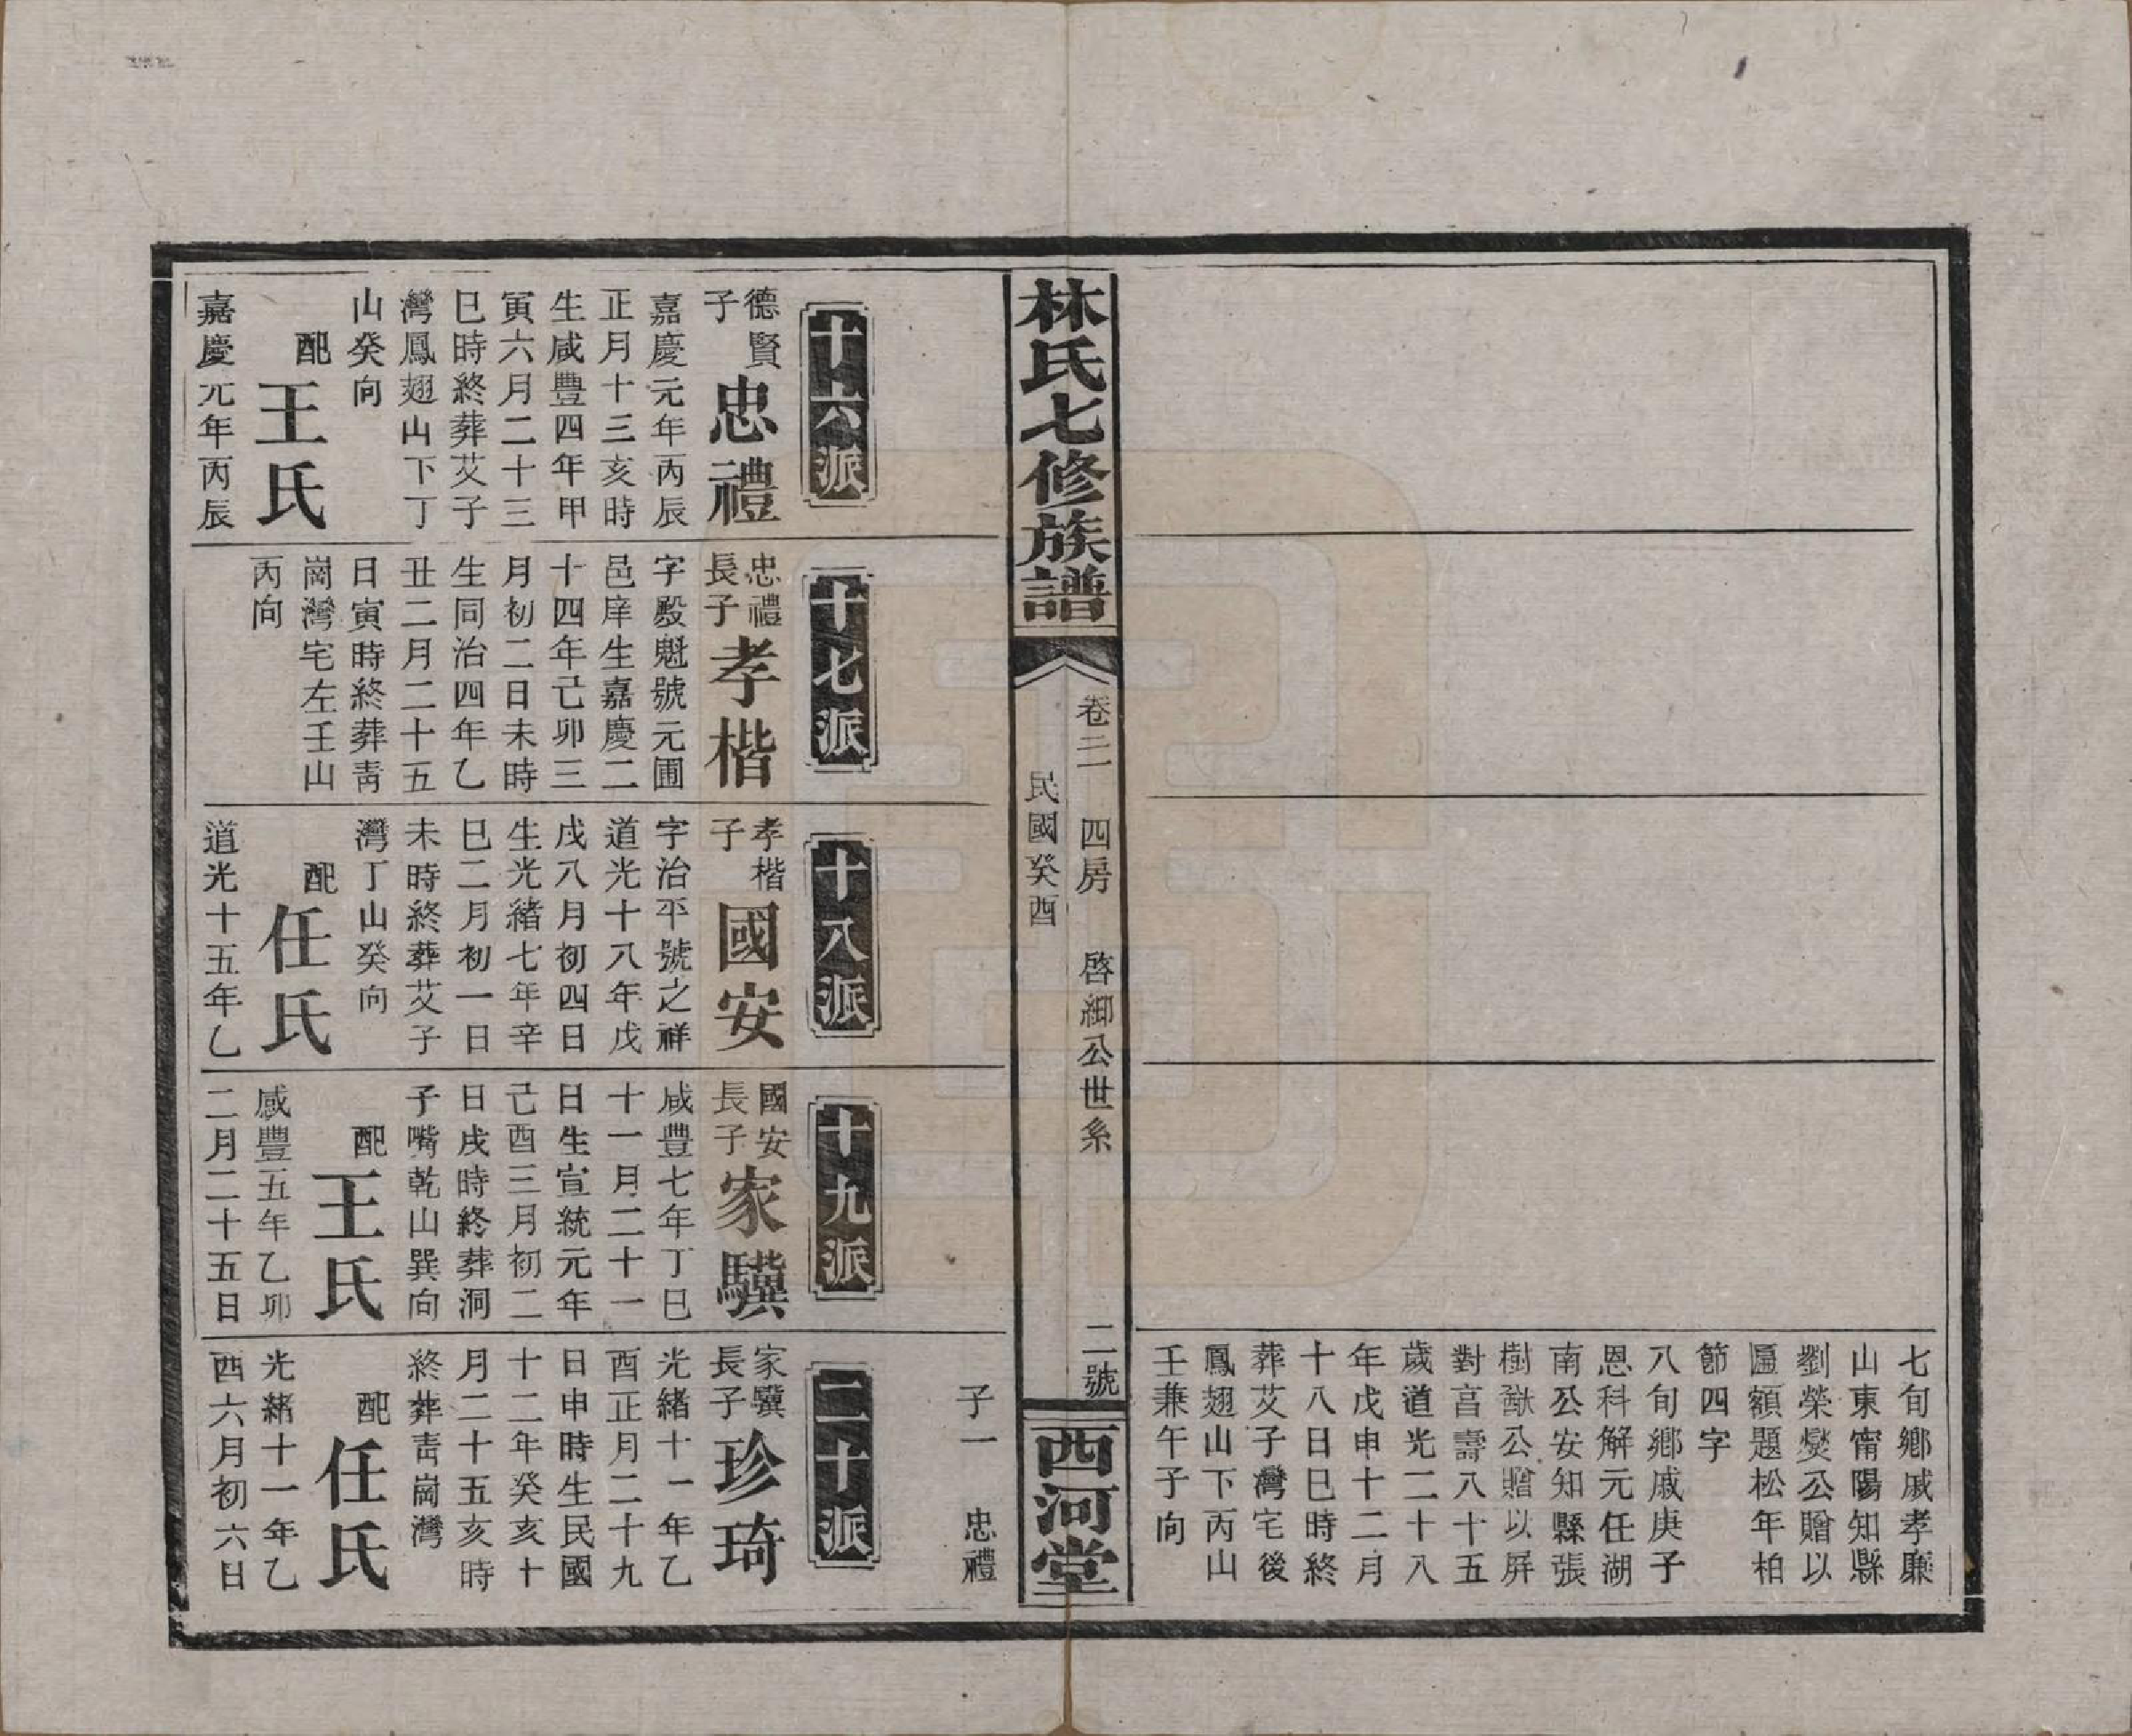 七旬鄉戚孝廉
山東甯陽知縣
劉榮燮公贈以
匾額題松年柏
節四字
八旬鄉戚庚子
恩科解元任湖
南公安知縣張
樹猷公贈以屏
對言壽八十五
歲道光二十八
年戊申十二月
十八日巳時終
葬艾子灣宅後
鳳翅山下丙山
壬兼午子向
林氏七修族譜
卷二 四房 啓鄉公世系 二號
民國癸酉
西河堂
子一 忠禮
十六派
德賢
子
忠禮
嘉慶元年丙辰
正月十三亥時
生咸豐四年甲
寅六月二十三
巳時終葬艾子
灣鳳翅山下丁
山癸向
配王氏
嘉慶元年丙辰
十七派
忠禮
長子
孝楷
字殿魁號元圃
邑庠生嘉慶二
十四年己卯三
月初二日未時
生同治四年乙
丑二月二十五
日寅時終葬靑
崗灣宅左壬山
丙向
十八派
孝楷
子
國安
字治平號之祥
道光十八年戊
戌八月初四日
生光緒七年辛
巳二月初一日
未時終葬艾子
灣丁山癸向
配任氏
道光十五年乙
十九派
國安
長子
家驥
咸豐七年丁巳
十一月二十一
日生宣統元年
己酉三月初二
日戌時終葬洞
子嘴乾山巽向
配王氏
咸豐五年乙卯
二月二十五日
二十派
家驥
長子
珍琦
光緒十一年乙
酉正月二十九
日申時生民國
十二年癸亥十
月二十五亥時
終葬靑崗灣
配任氏
光緒十一年乙
酉六月初六日